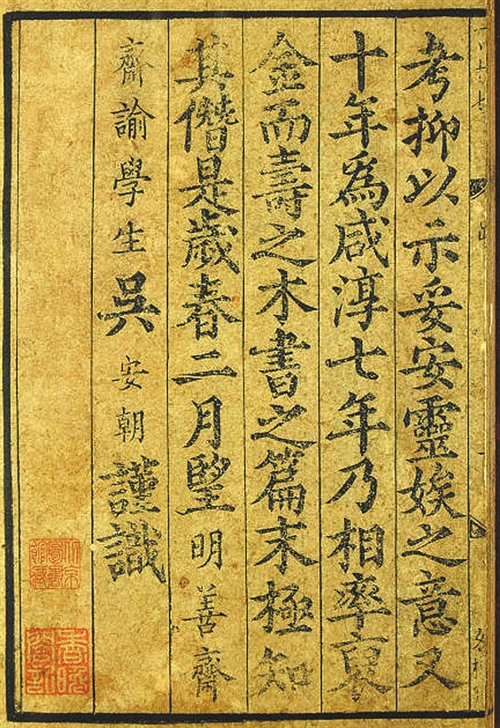 考抑以示妥安靈娭之意又
十年爲咸淳七年乃相率裒
金而壽之木書之篇末極知
其僭是歲春二月朢明善齋
齋諭學生吳安朝謹識